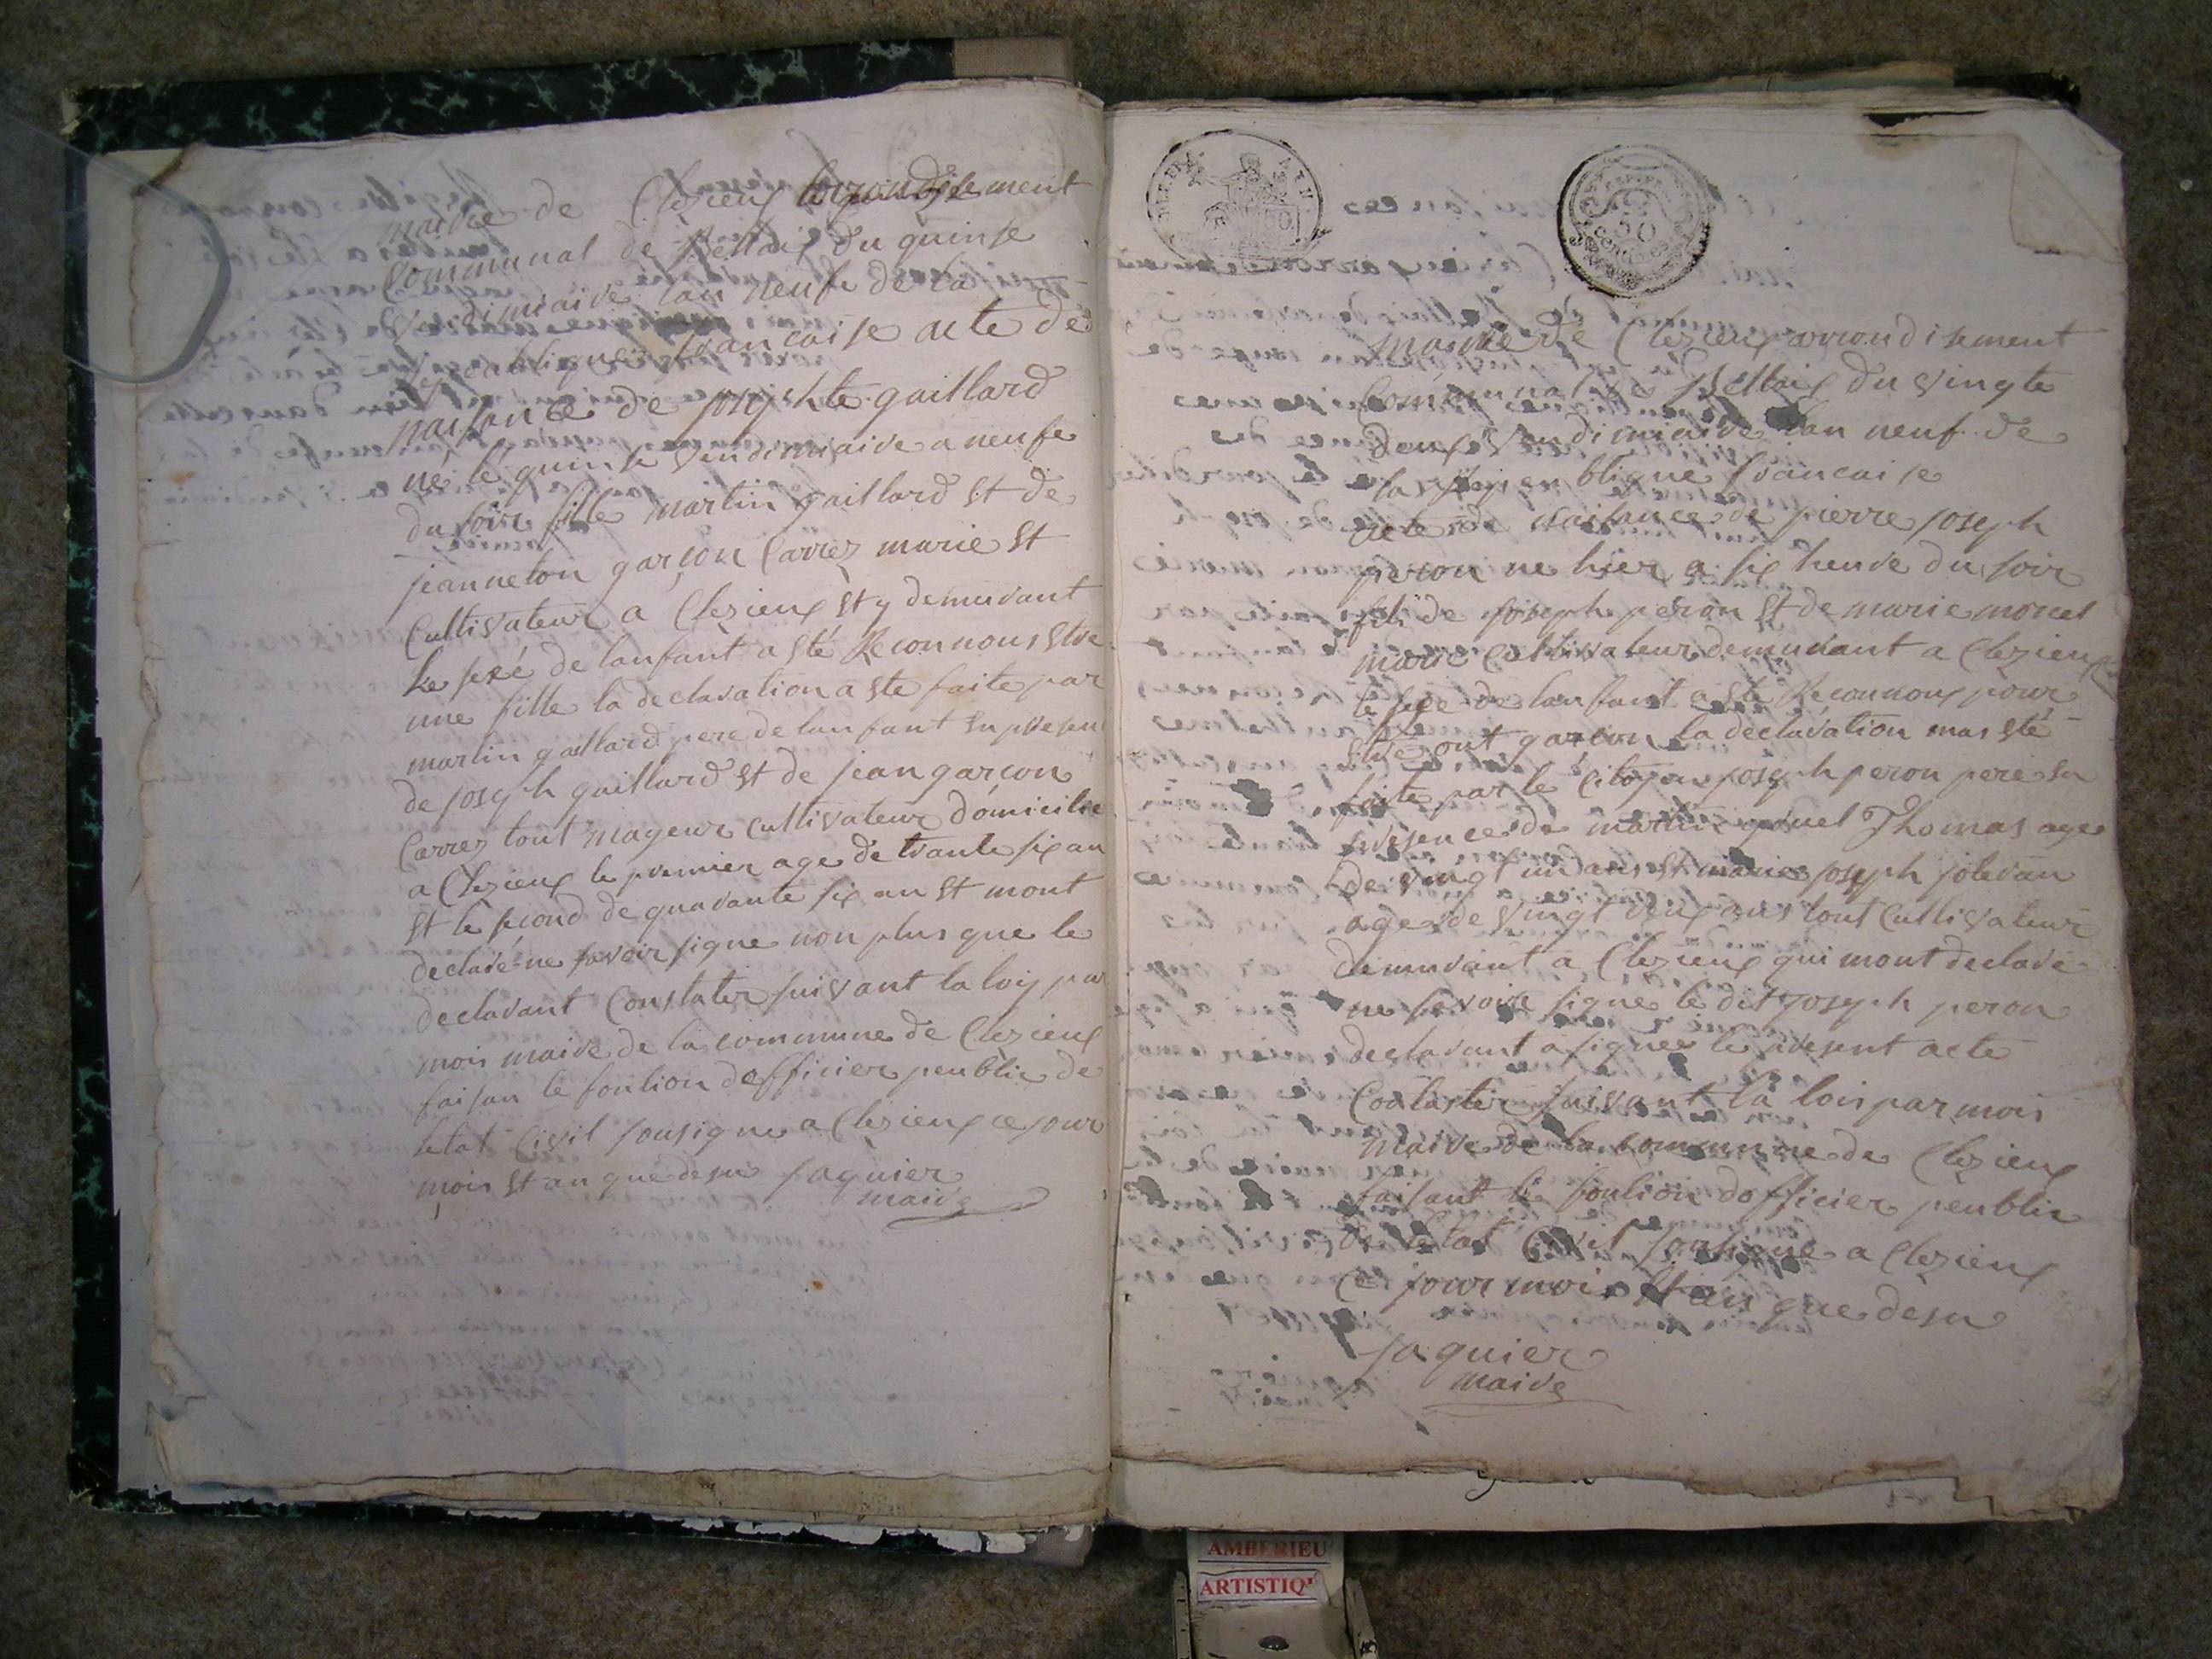 mairie de Clezieux arrondisement
Communal de Bellaix du quinse
vendimiaire lan neufe de la
republique francaise acte de
naisance de josephte gaillard
né le quinse vendimiaire a neufe
du soir fille martin gaillard et de
jeanneton garcon Carrez marie et
Cultivateur a Clezieux et y demurant
Le sexé de lanfant a eté Reconnous etre
une fille la declaration a ete faite par
martin gaillard pere de lanfant en presen
de joseph gaillard et de jean garcon
Carrez tout mageur cultivateur domicilie
a Clezieux le premier age de trante six an
et le second de quarante six an et mont
declaré ne savoir signe non plus que le
declarant Constater suivant la loy par
mois maire de la commune de Clezieux
faisan le fontion dofficier peublic de
letat Civil sousigne a Clezieux ce jour
mois et an que desu jaquier
maire
50
50
centimes
mairie de Clezieux arrondisement
Communal de Bellaix du vingte
deux vendimiaire lan neuf de
la Republique francaise
acte de naisance de pierre joseph
peron ne hier a six heure du soir
fils de joseph peron et de marie morel
marie Cultivateur demurant a Clezieux
le sexe de lanfant a ete Reconnoux pour
etre ont garcon la declaration mas eté
faite par le citoyen joseph peron pere en
presence de martin Thomas age
de vingt un ans et marie joseph
age de vingt deux ans tout Cultivateur
demurant a Clezieux qui mont declare
ne savoir signe le dit joseph peron
declarant a signee le present acte
Contaster suivant la lois par mois
maire de la commune de Clezieux
faisant le fontion dofficier peublic
de letat Civil sousigne a Clezieux
Ce jour mois et an que desu
jaquier
maire
AMBERIEU
ARTISTIQ